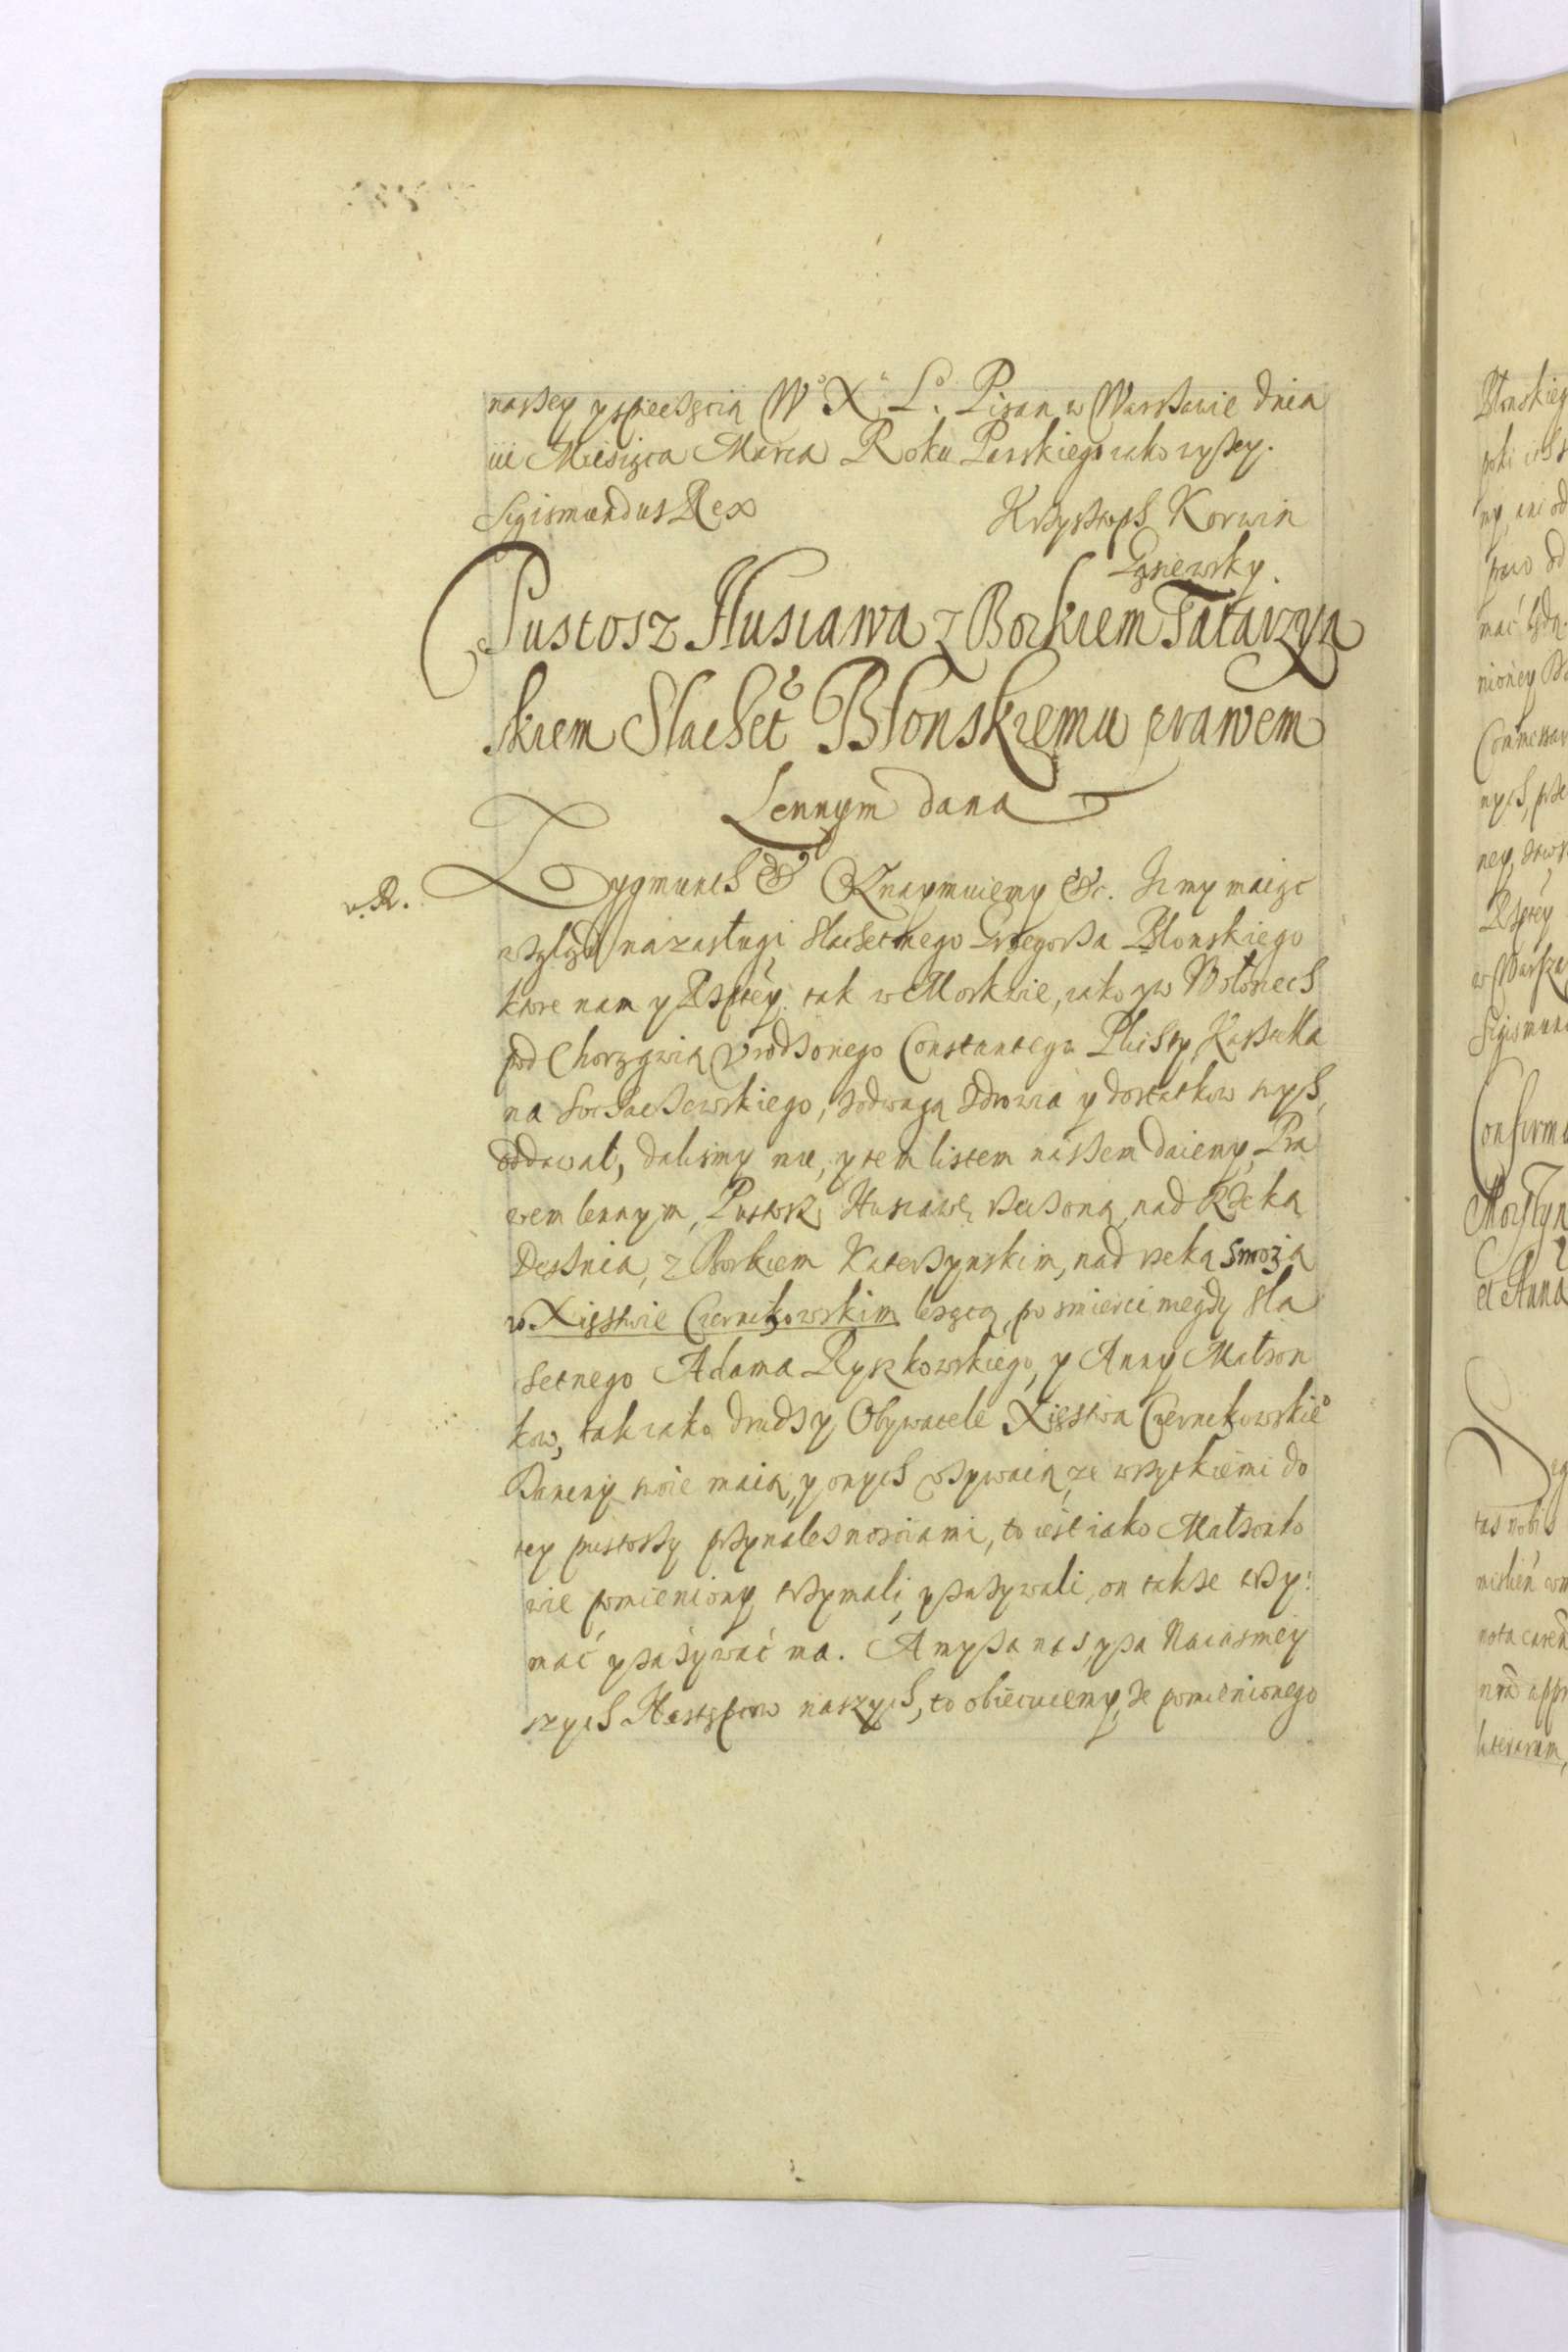 naszey y pieczęcią W° X° L°. Pisan w Warszawie dnia
iii Miesiąca Marca Roku Panskiego iako wyszey.
Sigismundus Rex Krzysztoph Korwin
Gąsiewsky.
Pustosz Husiawa z Borkiem Tatarzyn
skiem Slachet° Błonskiemu prawem
Lennym dana
v. R.
Zygmunth &c Oznaymuiemy &c. Iz my maiąc
wzgląd na zasługi slachetnego Grzegorza Błonskiego
ktore nam y Rzptey. tak w Moskwie, iako y w Wołoszech
pod Chorągwią Vrodzonego Constantego Plichty Kasztella
na Sochaczewskiego, z odwagą zdrowia y dostatkow swych,
oddawał, dalismy mu, y tem listem naszem daiemy, Pra
wem lennym, Pustosz Husiawę rzeczoną, nad Rzeką
Desznia, z Borkiem Katerzynskim, nad rzeką Smożą
w Xięstwie Czernihowskim leżącą, po smierci niegdy sla
chetnego Adama Ryszkowskiego, y Anny Małzon
kow, tak iako drudzy Obywatele Xięstwa Czernihowskie°
Daniny swoie maią, y onych vżywaią, ze wszytkiemi do
tey pustoszy przynaleznosciami, to iest iako Małzonko
wie pomieniony trzymali, y zażywali, on takze trzy:
mać y zażywać ma. A my za nas, y za Naiasniey
szych Następcow naszych, to obiecuiemy, ze pomienionego